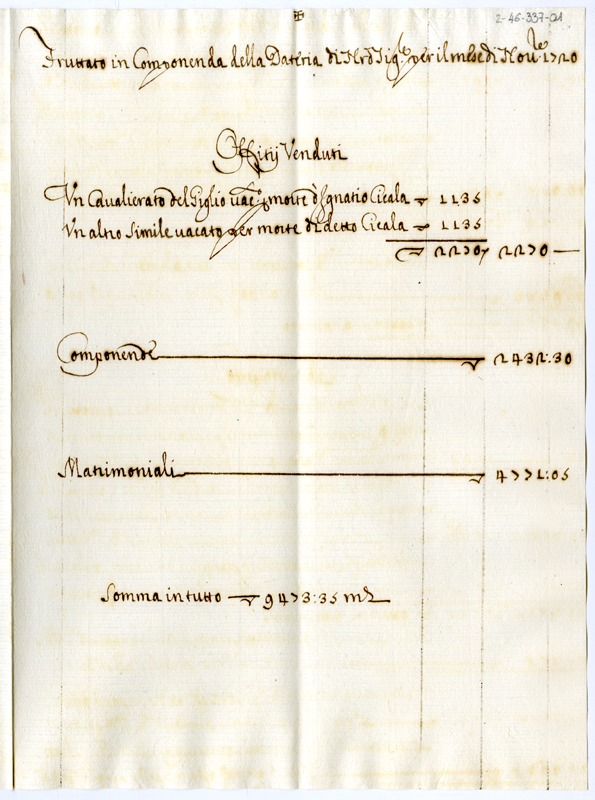 2-46-337-01
Fruttato in Componenda della Dateria di Nrõ Sig.re per il mese di Nou.re 1720
Offitij Venduti
Vn Cavalierato del Giglio uac.o p morte d'Ignatio Cicala 1135
Vn altro simile uacato per morte di detto Cicala 1135
2270 2270
Componende 2432:30
Matrimoniali 4771:05
Somma in tutto 9473:35 m.ta